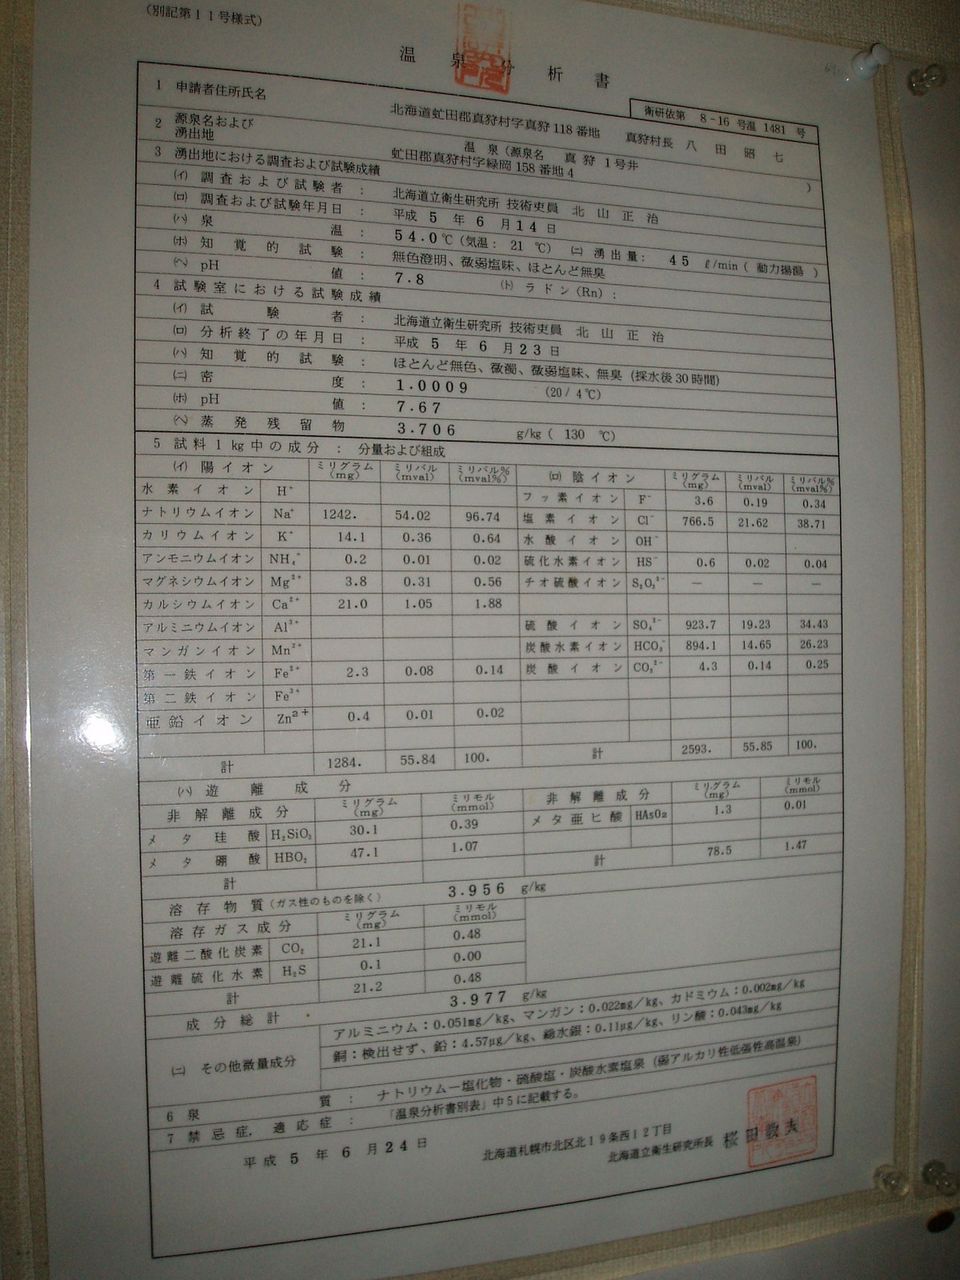 (別記第11号様式)
温泉分析書
衛研依第 8-16 号温 1481 号
1 申請者住所氏名 北海道虻田郡真狩村字真狩118番地 真狩村長 八田昭七
2 源泉名および湧出地 温泉(源泉名 真狩1号井 )
虻田郡真狩村字緑岡158番地4
3 湧出地における調査および試験成績
(イ) 調査および試験者 : 北海道立衛生研究所 技術吏員 北山正治
(ロ) 調査および試験年月日 : 平成 5 年 6 月 14 日
(ハ) 泉温 : 54.0℃ (気温: 21 ℃) (ニ) 湧出量: 45 ℓ/min ( 動力揚湯 )
(ホ) 知覚的試験 : 無色澄明、微弱塩味、ほとんど無臭
(ヘ) pH値 : 7.8 (ト) ラドン (Rn) :
4 試験室における試験成績
(イ) 試験者 : 北海道立衛生研究所 技術吏員 北山正治
(ロ) 分析終了の年月日 : 平成 5 年 6 月 23 日
(ハ) 知覚的試験 : ほとんど無色、微濁、微弱塩味、無臭 (採水後30時間)
(ニ) 密度 : 1.0009 (20/4℃)
(ホ) pH値 : 7.67
(ヘ) 蒸発残留物 3.706 g/kg ( 130 ℃)
5 試料1kg中の成分 : 分量および組成
(イ) 陽イオン ミリグラム(mg) ミリバル(mval) ミリバル%(mval%) (ロ) 陰イオン ミリグラム(mg) ミリバル(mval) ミリバル%(mval%)
水素イオン H⁺ フッ素イオン F⁻ 3.6 0.19 0.34
ナトリウムイオン Na⁺ 1242. 54.02 96.74 塩素イオン Cl⁻ 766.5 21.62 38.71
カリウムイオン K⁺ 14.1 0.36 0.64 水酸イオン OH⁻
アンモニウムイオン NH₄⁺ 0.2 0.01 0.02 硫化水素イオン HS⁻ 0.6 0.02 0.04
マグネシウムイオン Mg²⁺ 3.8 0.31 0.56 チオ硫酸イオン S₂O₃²⁻ — — —
カルシウムイオン Ca²⁺ 21.0 1.05 1.88
アルミニウムイオン Al³⁺ 硫酸イオン SO₄²⁻ 923.7 19.23 34.43
マンガンイオン Mn²⁺ 炭酸水素イオン HCO₃⁻ 894.1 14.65 26.23
第一鉄イオン Fe²⁺ 2.3 0.08 0.14 炭酸イオン CO₃²⁻ 4.3 0.14 0.25
第二鉄イオン Fe³⁺
亜鉛イオン Zn²⁺ 0.4 0.01 0.02
計 1284. 55.84 100. 計 2593. 55.85 100.
(ハ) 遊離成分
非解離成分 ミリグラム(mg) ミリモル(mmol) 非解離成分 ミリグラム(mg) ミリモル(mmol)
メタ珪酸 H₂SiO₃ 30.1 0.39 メタ亜ヒ酸 HAsO₂ 1.3 0.01
メタ硼酸 HBO₂ 47.1 1.07
計 計 78.5 1.47
溶存物質 (ガス性のものを除く) 3.956 g/kg
溶存ガス成分 ミリグラム(mg) ミリモル(mmol)
遊離二酸化炭素 CO₂ 21.1 0.48
遊離硫化水素 H₂S 0.1 0.00
計 21.2 0.48
成分総計 3.977 g/kg
(ニ) その他微量成分 アルミニウム:0.051mg/kg、マンガン:0.022mg/kg、カドミウム:0.002mg/kg
銅:検出せず、鉛:4.57μg/kg、総水銀:0.11μg/kg、リン酸:0.043mg/kg
6 泉質 : ナトリウム―塩化物・硫酸塩・炭酸水素塩泉 (弱アルカリ性低張性高温泉)
7 禁忌症、適応症 : 「温泉分析書別表」中5に記載する。
平成 5 年 6 月 24 日
北海道札幌市北区北19条西12丁目
北海道立衛生研究所長 桜田教夫